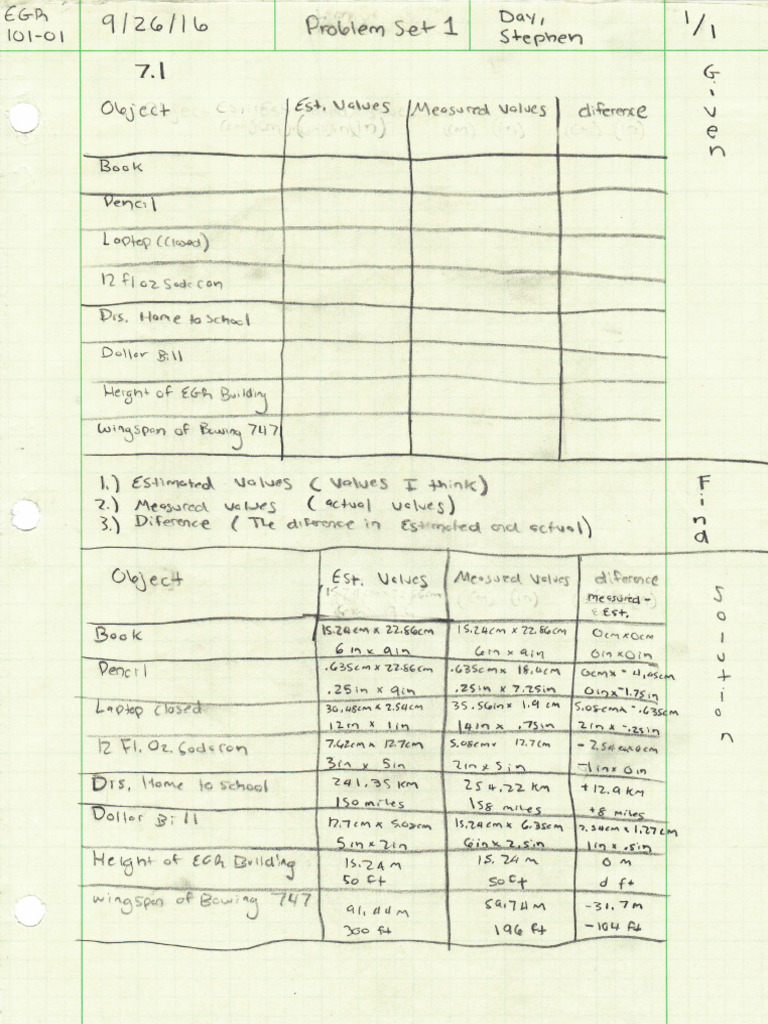 EGR
101-01
9/26/16
Problem Set 1
Day,
Stephen
1/1
7.1
Given
Object Est. Values Measured Values diference
Book
Pencil
Laptop (Closed)
12 fl oz Soda can
Dis. Home to School
Dollar Bill
Height of EGR Building
Wingspan of Bowing 747
Find
1.) Estimated Values ( Values I think)
2.) Measured values ( actual values)
3.) Diference ( The diference in Estimated and actual)
Solution
Object Est. Values Measured Values diference
measured -
Est.
Book 15.24cm x 22.86cm 15.24cm x 22.86cm 0cm x 0cm
6in x 9in 6in x 9in 0in x 0in
Pencil .635cm x 22.86cm .635cm x 18.4cm 0cm x -4.45cm
.25in x 9in .25in x 7.25in 0in x -1.75in
Laptop closed 30.48cm x 2.54cm 35.56in x 1.9 cm 5.08cm x -.635cm
12in x 1in 14in x .75in 2in x -.25in
12 Fl. Oz. Soda can 7.62cm x 12.7cm 5.08cm x 12.7cm -2.54cm x 0cm
3in x 5in 2in x 5in -1in x 0in
Dis. Home to school 241.35 KM 254.22 KM +12.9 KM
150 miles 158 miles +8 miles
Dollar Bill 12.7cm x 5.08cm 15.24cm x 6.35cm 2.54cm x 1.27cm
5in x 2in 6in x 2.5in 1in x .5in
Height of EGR Building 15.24 M 15.24 M 0 M
50 ft 50 ft 0 ft
Wingspan of Bowing 747 91.44 M 59.74 M -31.7 M
300 ft 196 ft -104 ft